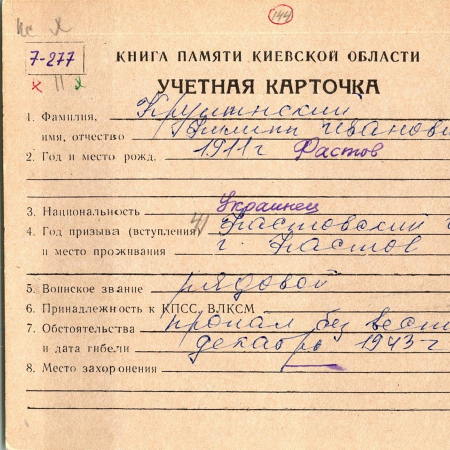 144
7-277
КНИГА ПАМЯТИ КИЕВСКОЙ ОБЛАСТИ
УЧЕТНАЯ КАРТОЧКА
1. Фамилия, Крушинский
имя, отчество Филипп Иванови
2. Год и место рожд. 1911 г Фастов
3. Национальность Украинец
4. Год призыва (вступления) 41 Фастовский
и место проживания г. Фастов
5. Воинское звание рядовой
6. Принадлежность к КПСС, ВЛКСМ
7. Обстоятельства пропал без вест
и дата гибели декабрь 1943 г
8. Место захоронения